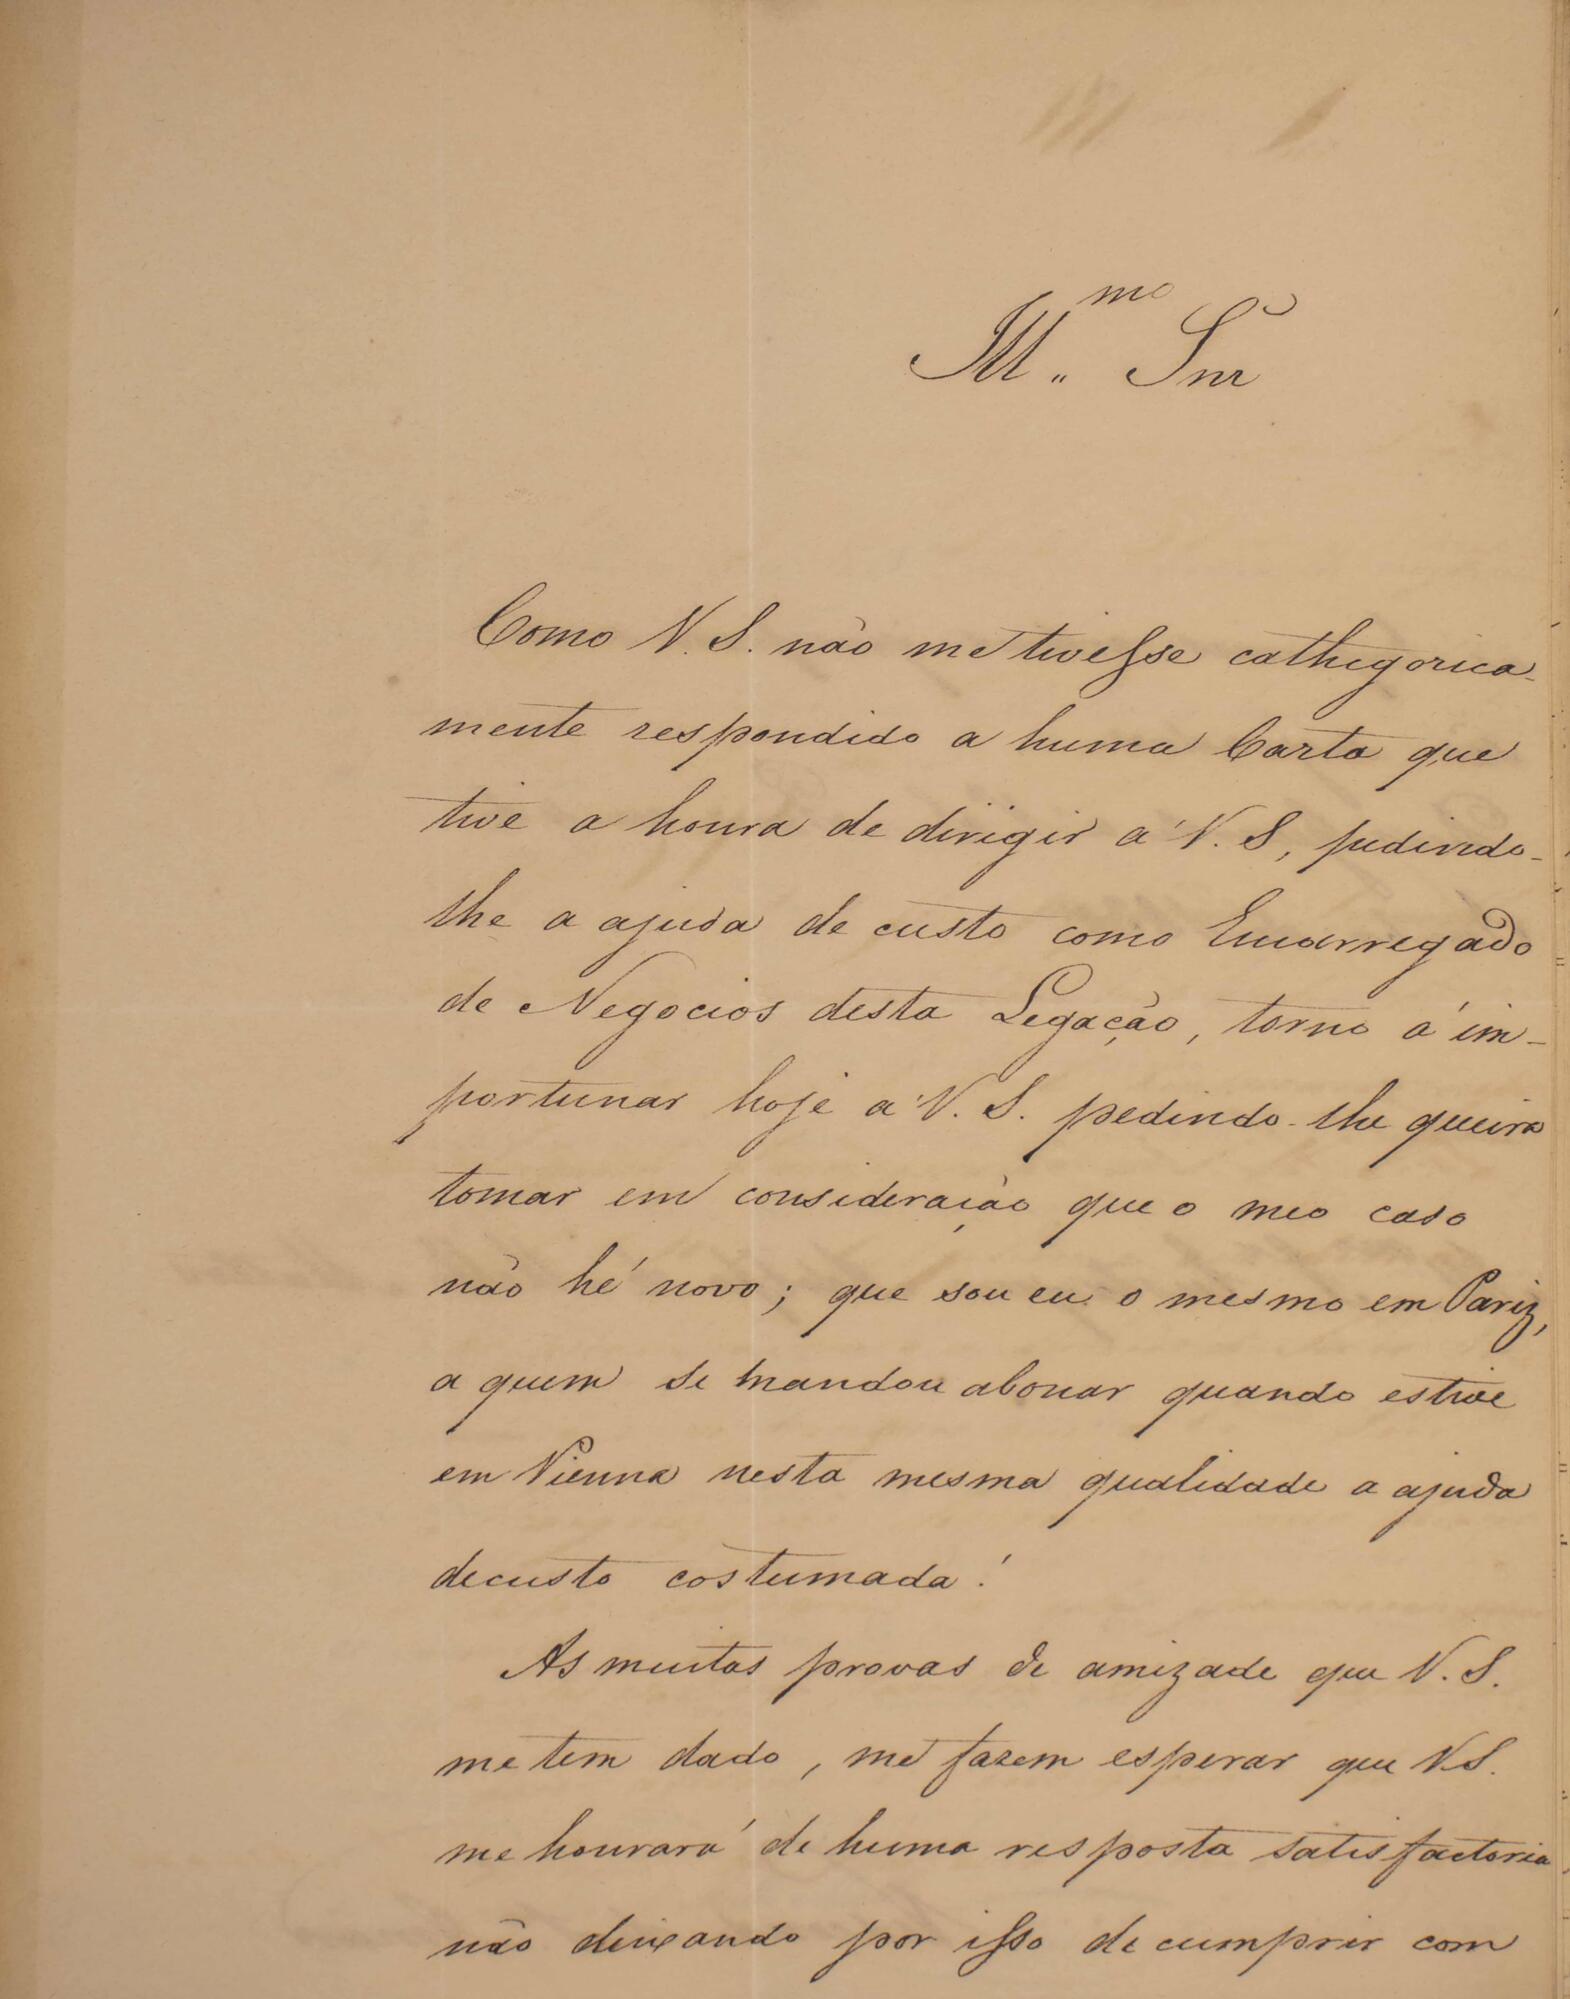 Ill.mo Snr
Como V. S. não me tivesse cathegorica-
mente respondido a huma Carta que
tive a honra de dirigir á V. S, pedindo-
lhe a ajuda de custo como Encarregado
de Negocios desta Legação, torno á im-
portunar hoje a V. S. pedindo-lhe queira
tomar em consideração que o meo caso
não hé novo; que sou eu o mesmo em Pariz,
a quem se mandou abonar quando estive
em Vienna nesta mesma qualidade a ajuda
de custo costumada!
As muitas provas de amizade que V. S.
me tem dado, me fazem esperar que V.S.
me honrará de huma resposta satisfactoria
não deixando por isso de cumprir com